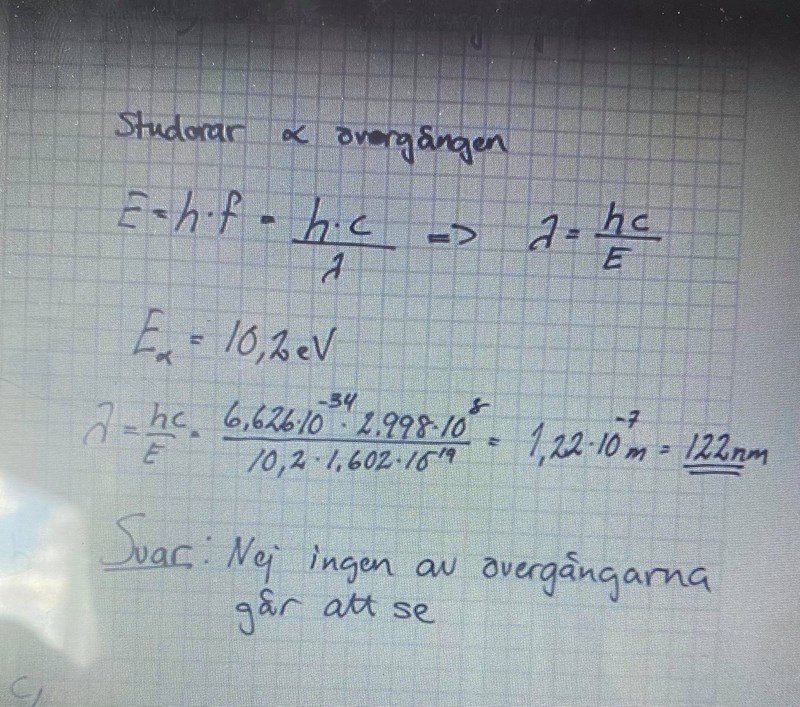 Studerar ∝ övergången
E = h·f = h·c / λ => λ = hc / E
E∝ = 10,2 eV
λ = hc / E = 6,626·10^-34 · 2.998·10^8 / 10,2 · 1,602·10^-19 = 1,22·10^-7 m = 122nm
Svar: Nej ingen av övergångarna
går att se
c,